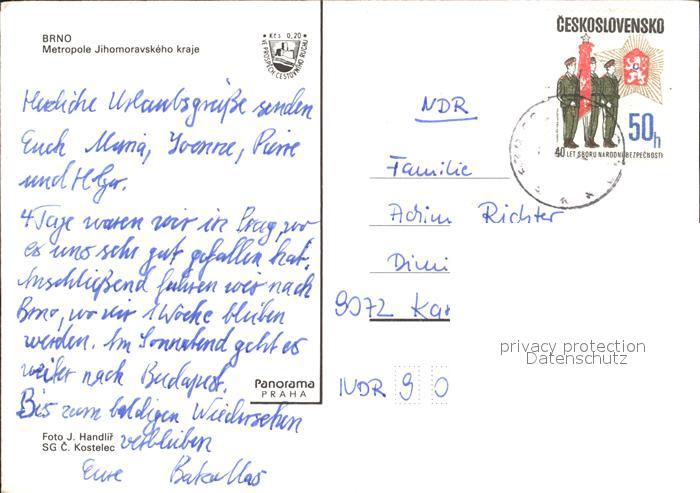 BRNO
Metropole Jihomoravského kraje
Kčs 0,20
VE PROSPĚCH CESTOVNÍHO RUCHU
Herzliche Urlaubsgrüße senden
Euch Maria, Yvonne, Pierre
und Holger.
4 Tage waren wir in Prag, wo
es uns sehr gut gefallen hat.
Anschließend fuhren wir nach
Brno, wo wir 1 Woche bleiben
werden. Am Sonnabend geht es
weiter nach Budapest.
Bis zum baldigen Wiedersehen
verbleiben
Eure
Panorama
PRAHA
Foto J. Handlíř
SG Č. Kostelec
ČESKOSLOVENSKO
50h
40 LET SBORU NÁRODNÍ BEZPEČNOSTI
NDR
Familie
Achim Richter
Dimi
9072 Kar
NDR 9 0
privacy protection
Datenschutz